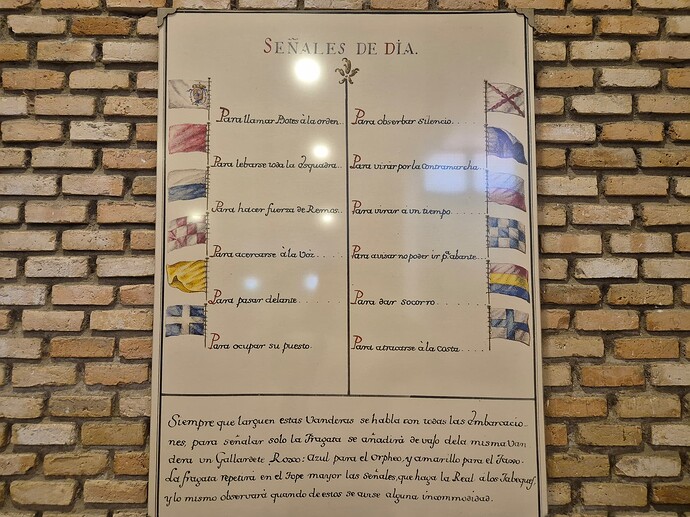 SEÑALES DE DÍA.
Para llamar Botes à la orden.
Para lebarse toda la Esquadra..
Para hacer fuerza de Remos..
Para acercarse à la Voz
Para pasar delante
Para ocupar su puesto.
Para obserbar silencio
Para virar por la contramarcha.
Para virar a un tiempo.
Para avisar no poder ir pª abante.
Para dar socorro
Para atracarse à la costa
Siempre que larguen estas Vanderas se habla con todas las Embarcacio-
nes, para señalar solo la Fragata se añadirà de vajo dela misma Van
dera un Gallardete Roxo: azul para el Orpheo, y amarillo para el
La fragata repetirà en el Tope mayor las Señales, que haga la Real a los
y lo mismo observarà quando de estos se avise alguna incommodidad.